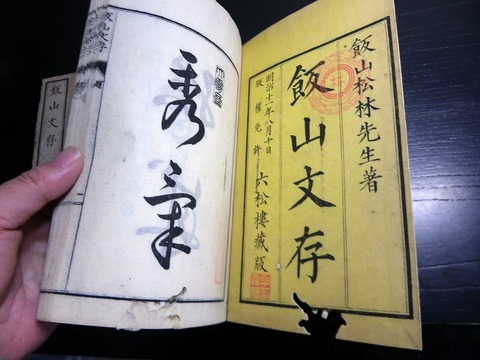 飯山松林先生著
飯山文存
明治十一年八月十日
版權免許
六松樓藏版
秀氣
飯山文存
飯山文存